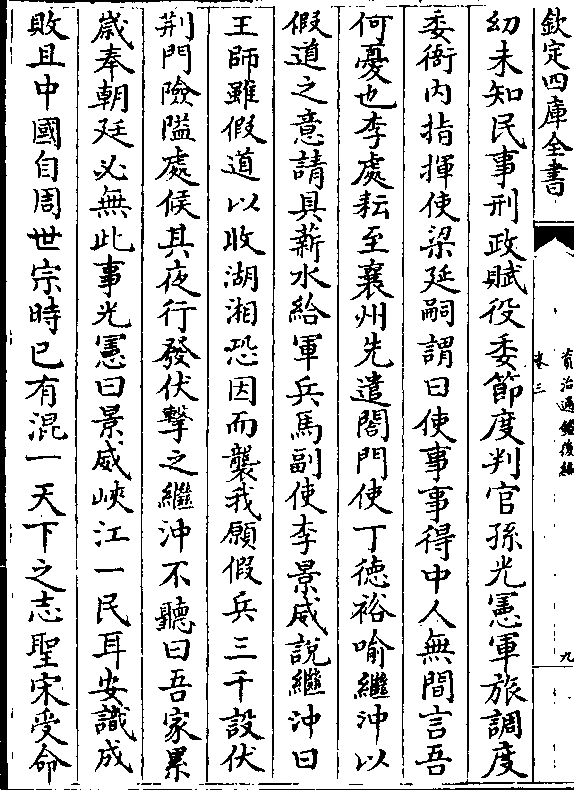 欽定四庫全書
資治通鑑後編
卷三
九
幼未知民事刑政賦役委節度判官孫光憲軍旅調度
委衙内指揮使梁延嗣謂曰使事事得中人無間言吾
何憂也李處耘至襄州先遣閤門使丁德裕喻繼沖以
假道之意請具薪水給軍兵馬副使李景威説繼沖曰
王師雖假道以收湖湘恐因而襲我願假兵三千設伏
荆門險隘處候其夜行發伏擊之繼沖不聽曰吾家累
嵗奉朝廷必無此事光憲曰景威峽江一民耳安識成
敗且中國自周世宗時已有混一天下之志聖宋受命